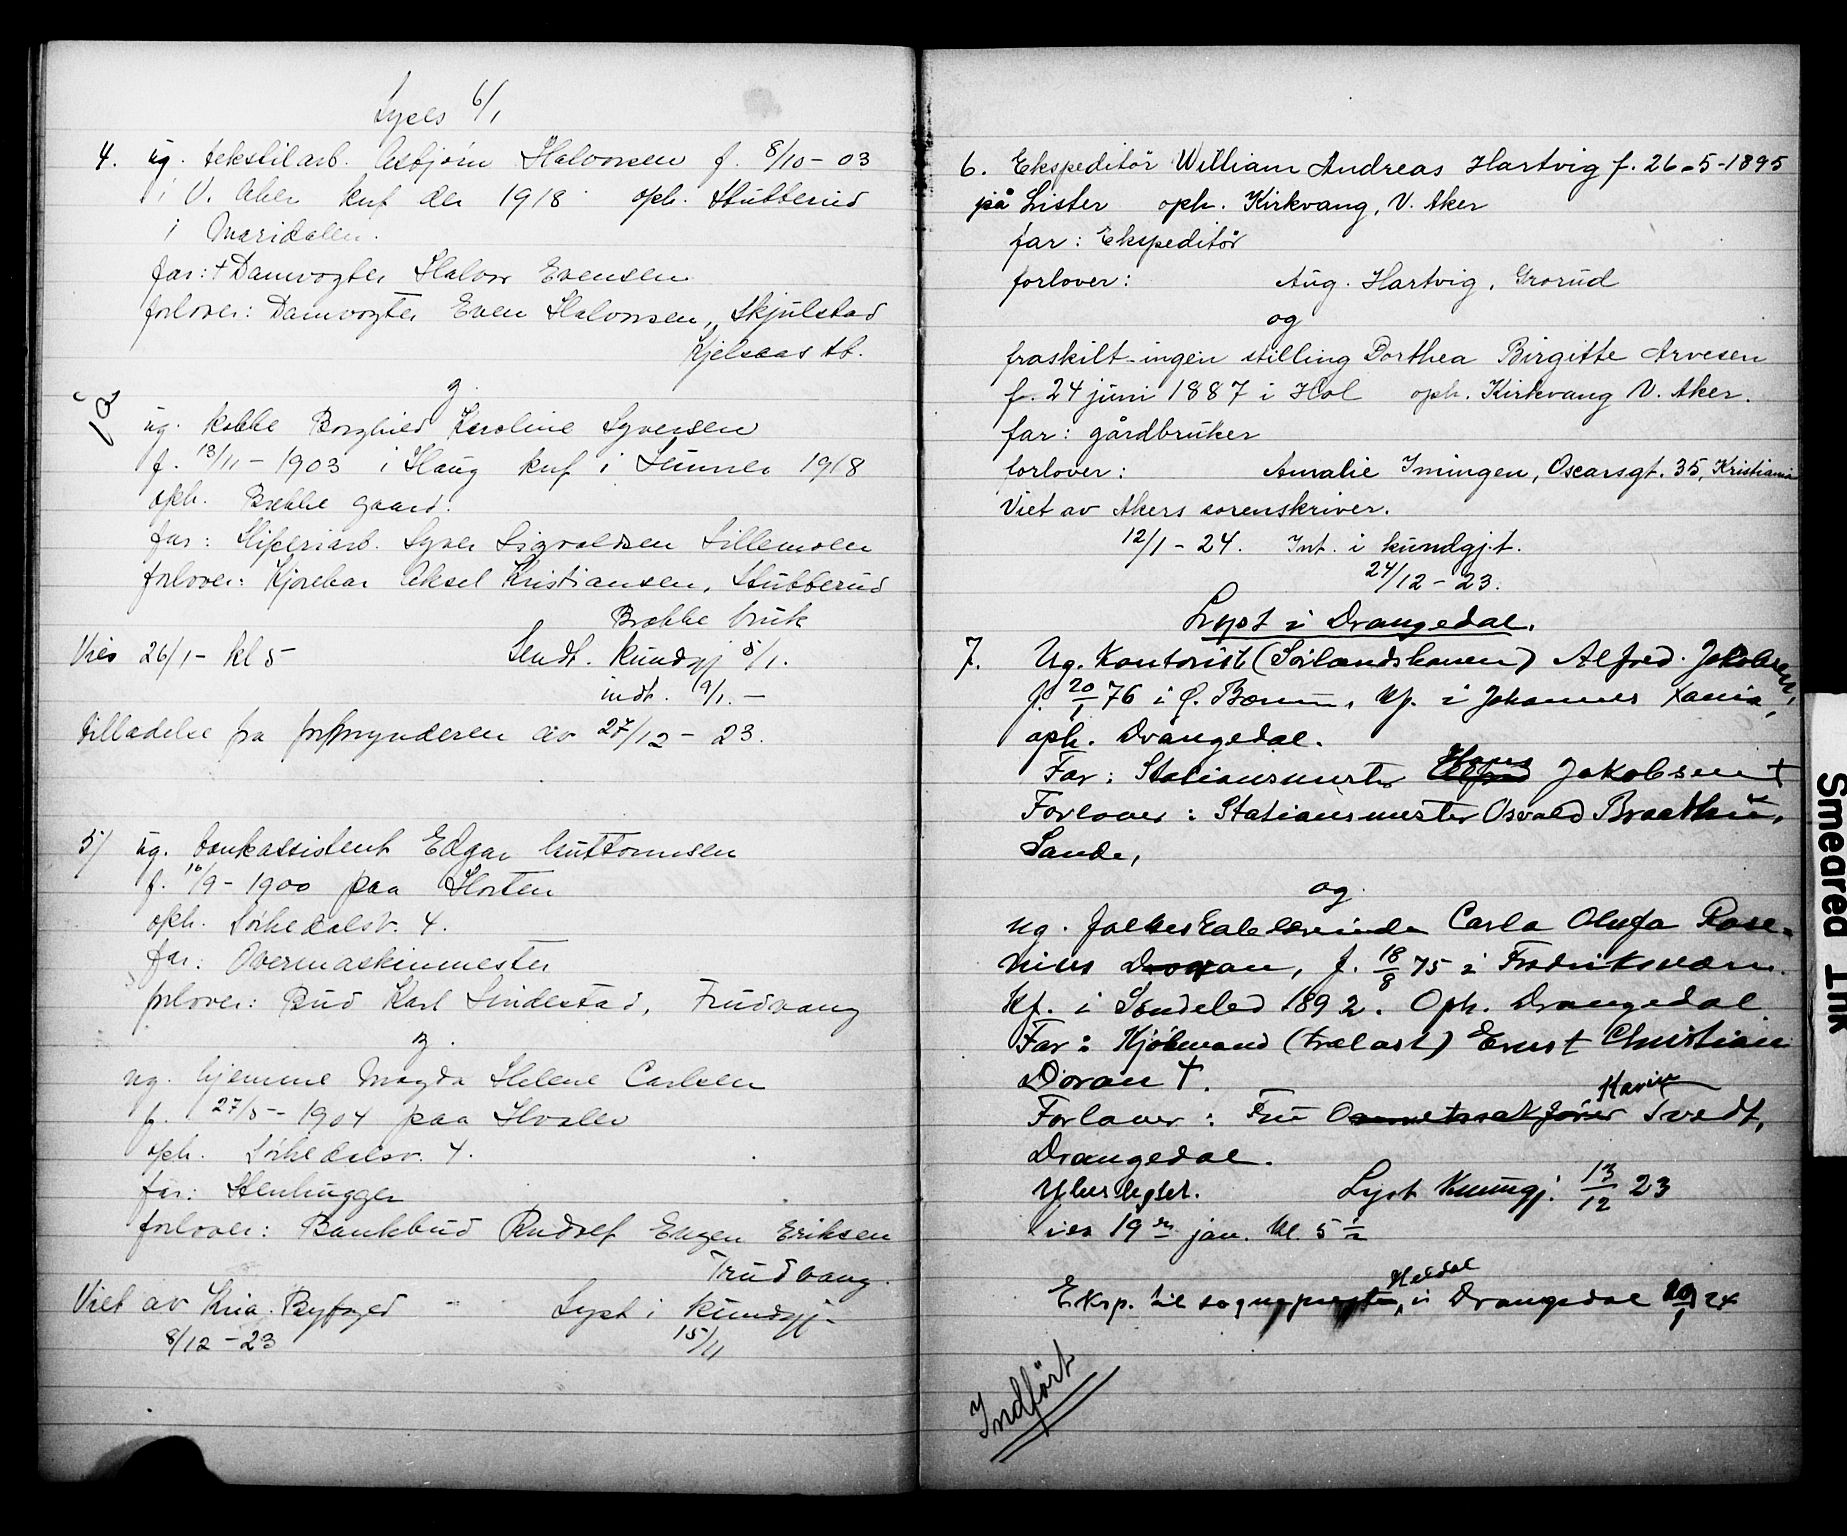 Lyses 6/1
4. ug. tekstilarb. Asbjørn Halvorsen f. 8/10-03
i V. Aker knf der 1918 oph. Stubberud
i Maridalen.
far: + Damvogter Halvor Evensen
forlover: Damvogter Even Halvorsen, Skjulstad
Kjelsaas st.
g.
ug. kokke Borghild Karoline Syversen
f. 13/11-1903 i Haug knf i Lunner 1918
oph. Brekke gaard.
far: Sliperiarb. Syver Sigvaldsen Lillemoen
forlover: Kjørekar Aksel Kristiansen, Stubberud
Brekke bruk
Vies 26/1- kl 5 Sendt. kundgj 5/1.
indt. 9/1.-
tilladelse fra formynderen av 27/12-23.
5/ ug. bankassistent Edgar Guttormsen
f. 16/9-1900 paa Horten
oph. Sørkedalsv. 4.
far: Overmaskinmester
forlover: Bud Karl Lindestad, Trudvang
og.
ug. hjemme Magda Helene Carlsen
f. 27/5-1904 paa Hvaler
oph. Sørkedalsv. 4.
far: Stenhugger
forlover: Bankbud Rudolf Eugen Eriksen
Trudvang.
Viet av Kria. Byfoged - Lyst i kundgj-
8/12-23 15/11
6. Ekspeditör William Andreas Hartvig f. 26-5-1895
på Lister oph. Kirkvang, V. Aker
far: Ekspeditör
forlover: Aug. Hartvig, Grorud
og
fraskilt ingen stilling Dorthea Birgitte Arvesen
f. 24 juni 1887 i Hol oph. Kirkvang V. Aker.
far: gårdbruker
forlover: Amalie Imingen, Oscarsgt. 35, Kristiania
Viet av Akers sorenskriver.
12/1-24. Int. i kundgj.t.
24/12-23.
Lyst i Drangedal.
7. Ug. Kontorist (Sørlandsbanen) Alfred Jakobsen,
f. 20/1 76 i Ø. Bærum, kf. i Johannes Xania,
oph. Drangedal.
Far: Stationsmester Hans Jakobsen +
Forlover: Stationsmester Osvald Braathen,
Sande,
og.
ug. folkeskolelærerinde Carla Olufa Rose-
nius Doran, f. 18/8 75 i Fredriksværn.
Kf. i Søndeled 1892. Oph. Drangedal.
Far: Kjøbmand (trælast) Ernst Christian
Doran +.
Forlover: Fru Karin Tvedt,
Drangedal.
Ubeslegtet. Lyst Kunngj. 13/12 23
ies 19de jan. kl. 5 1/2
Eksp. til sogneprest Heldal, i Drangedal 20/1 24
Indført
Smeared Ink